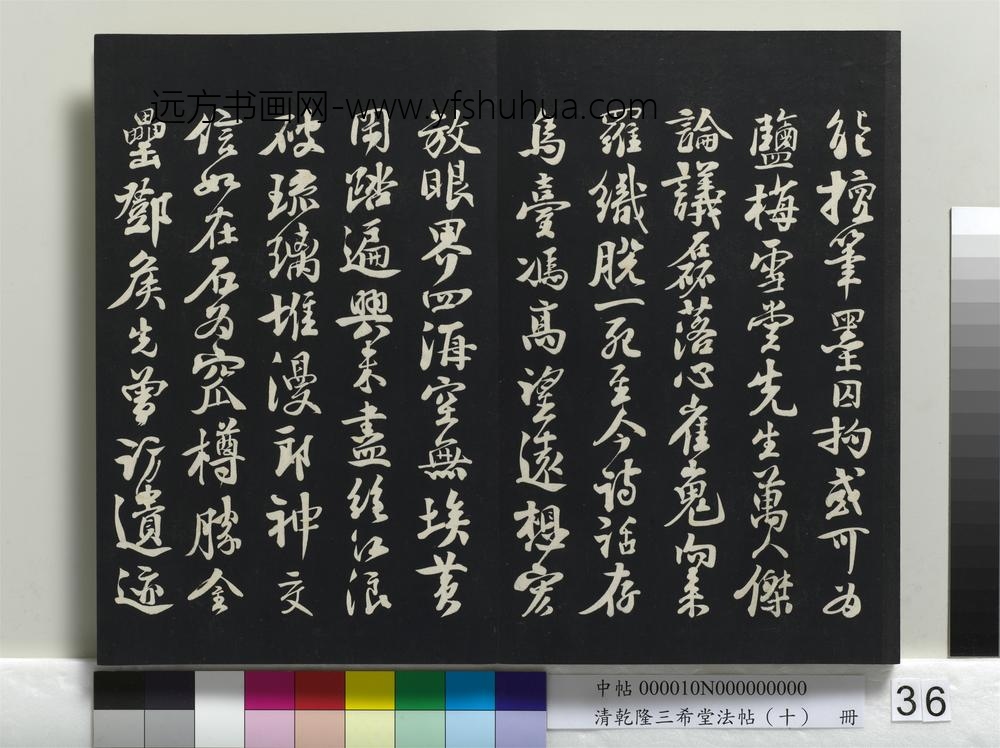 能擅筆墨囚拘或可為
鹽梅雪堂先生萬人傑
論議磊落心崔嵬向來
羅織脫一死至今詩話存
烏臺馮高望遠想宏
放眼界四海空無埃黃
岡踏遍興未盡絕江浪
破琉璃堆漫郎神交
信如在石為窊樽勝金
罍鄧侯先曾訪遺迹
远方书画网-www.yfshuhua.com
中帖 000010N000000000
清乾隆三希堂法帖（十） 冊
36